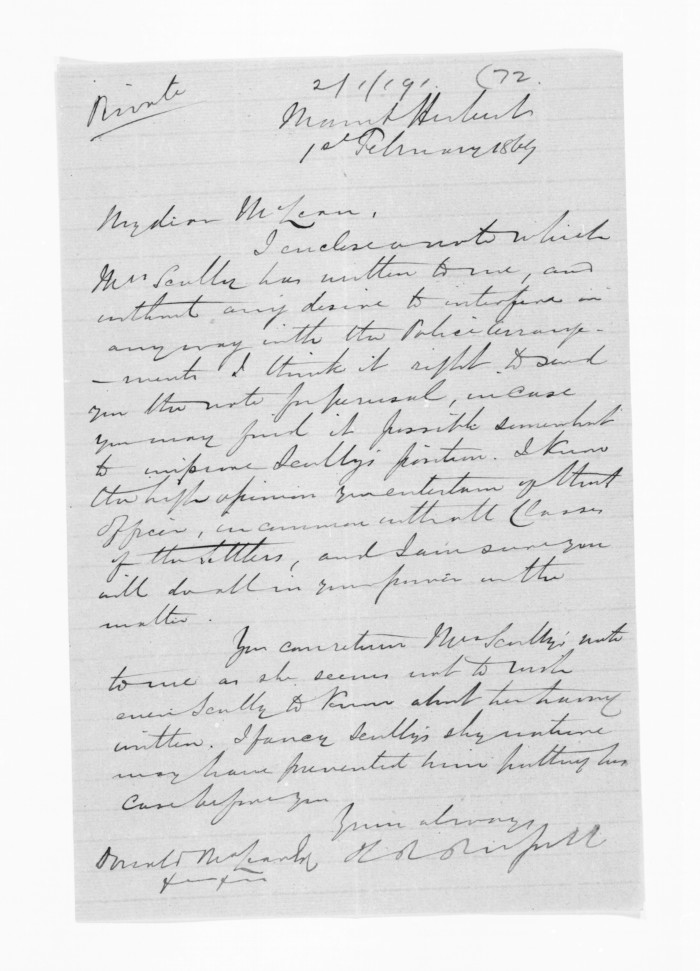 Private
2/1/191. (72.
Mount Herbert
1st February 1869
My dear McLean,
I enclose a note which
Mrs Scully has written to me, and
without any desire to interfere in
anyway with the Police arrange-
-ments I think it right to send
you the note for perusal, in case
you may find it possible somewhat
to improve Scully's position. I know
the high opinion you entertain of that
Officer, in common with all Classes
of the settlers, and I am sure you
will do all in your power in the
matter.
You can return Mrs Scully's note
to me as she seems not to wish
even Scully to know about her having
written. I fancy Scully's shy nature
may have prevented him putting his
case before you
Yours always
Donald McLean Esq